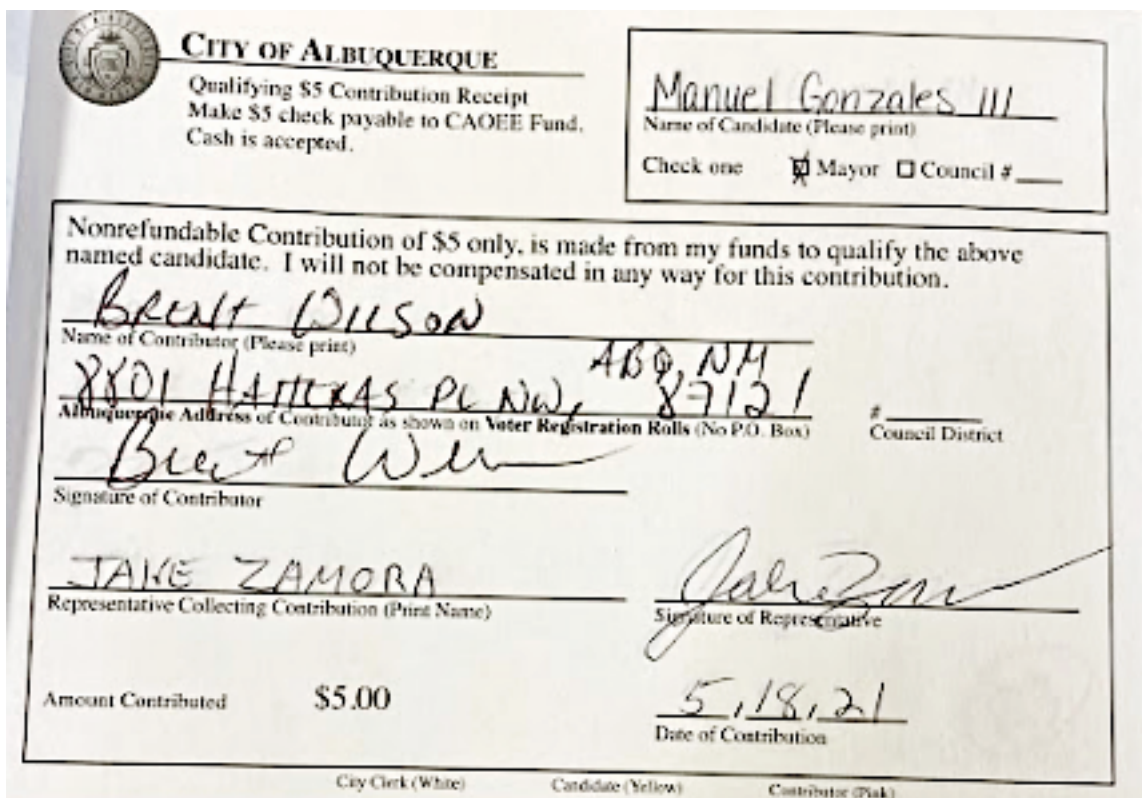 CITY OF ALBUQUERQUE
Qualifying $5 Contribution Receipt
Make $5 check payable to CAOEE Fund.
Cash is accepted.
Manuel Gonzales III
Name of Candidate (Please print)
Check one Mayor Council #
Nonrefundable Contribution of $5 only, is made from my funds to qualify the above
named candidate. I will not be compensated in any way for this contribution.
BRENT WILSON
Name of Contributor (Please print)
ABQ, NM
8801 HATTERAS PL NW, 87121
Albuquerque Address of Contributor as shown on Voter Registration Rolls (No P.O. Box)
#
Council District
Brent
Signature of Contributor
JAKE ZAMORA
Representative Collecting Contribution (Print Name)
Signature of Representative
Amount Contributed $5.00
5,18,21
Date of Contribution
City Clerk (White) Candidate (Yellow) Contributor (Pink)